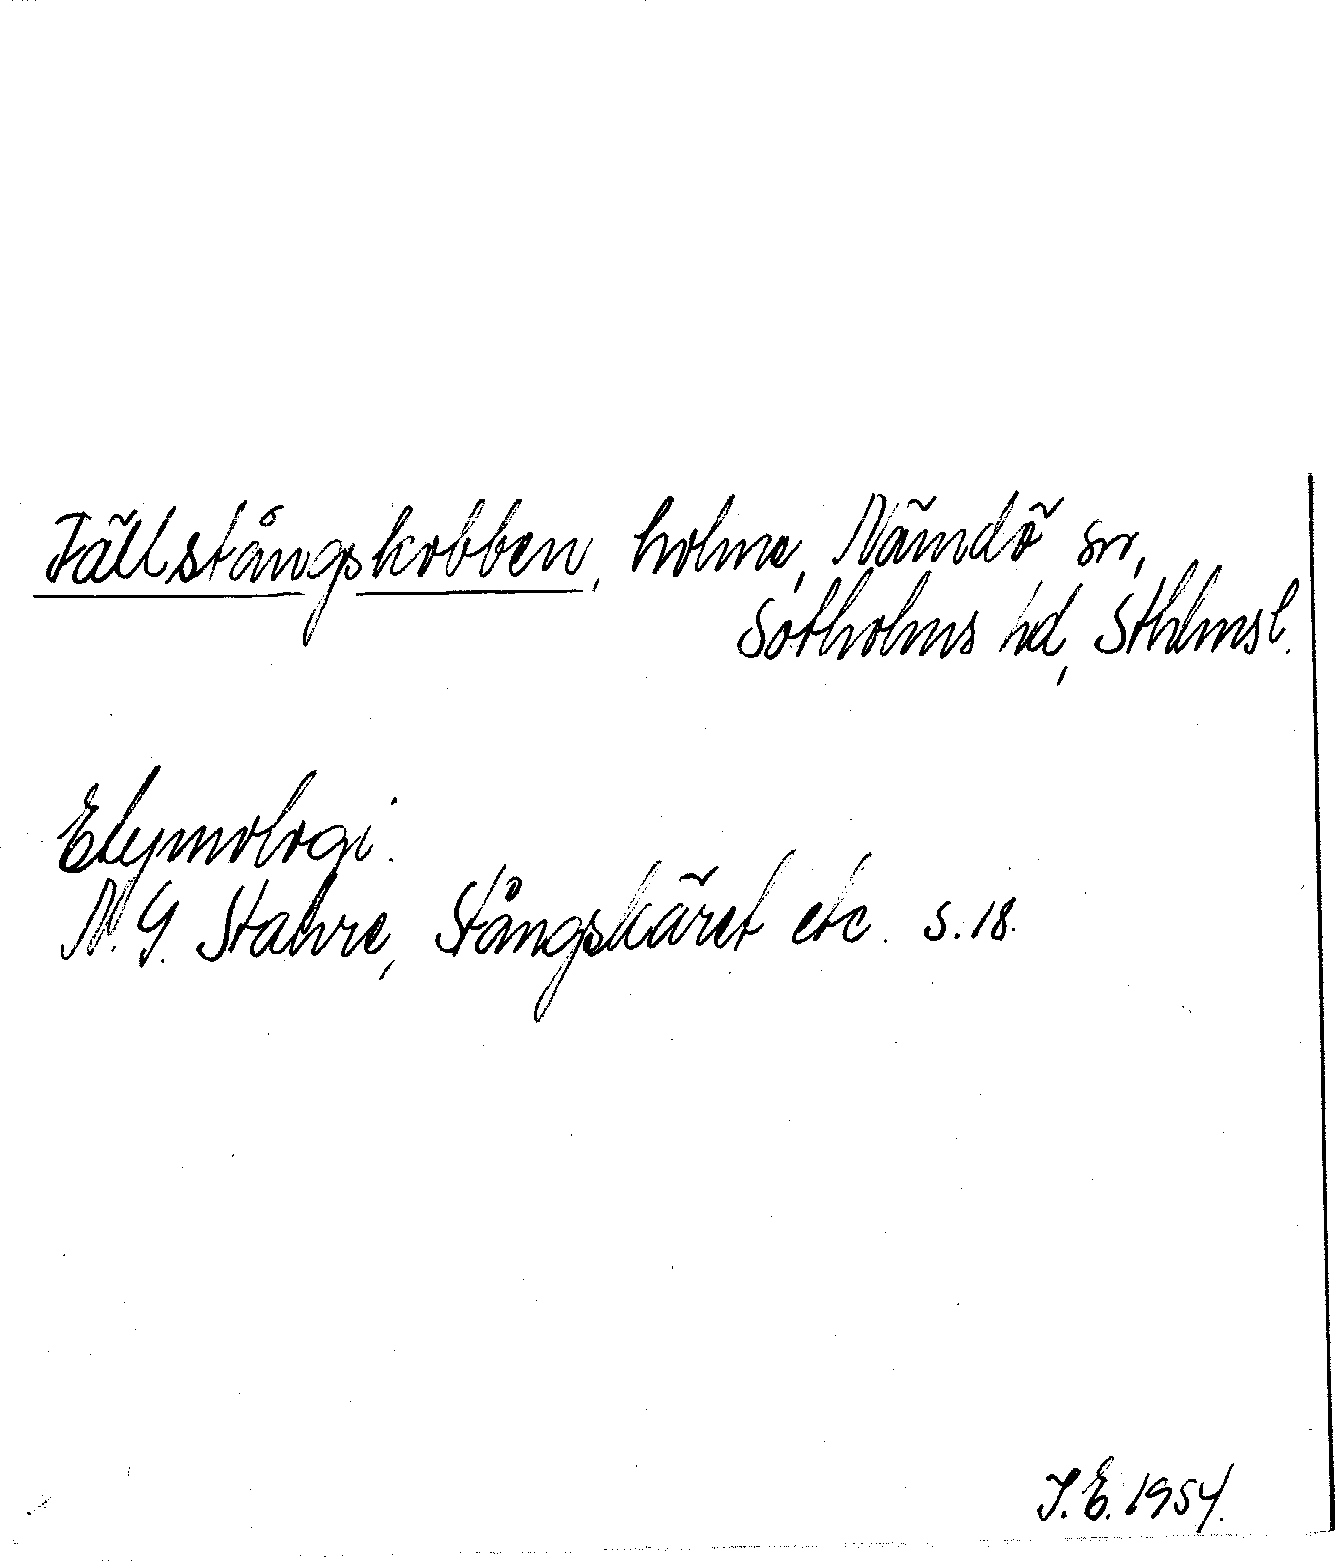 Fällstångskobben, holme, Nämdö sn,
Sotholms hd, Sthlmsl.
Etymologi.
N. G. Stahre, Stångskäret etc. s. 18.
I. E. 1954.